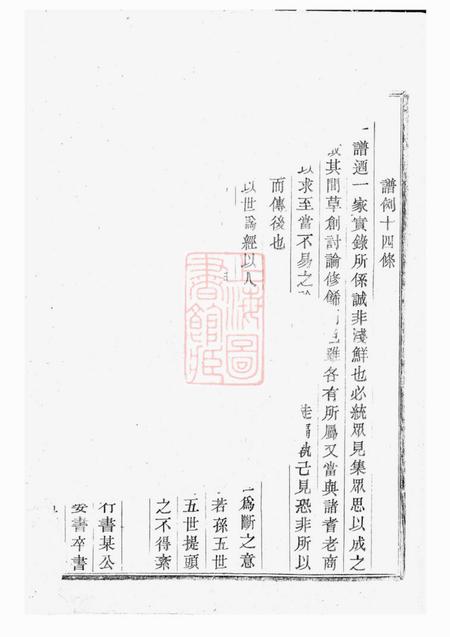 譜例十四條
一譜迺一家實錄所係誠非淺鮮也必統眾見集眾思以成之
其間草創討論修 雖各有所屬又當與諸耆老商
以求至當不易之 執己見恐非所以
而傳後也
以世為經以人 一為斷之意
若孫五世
五世提頭
之不得紊
行書某公
娶書卒書
上海圖書館藏